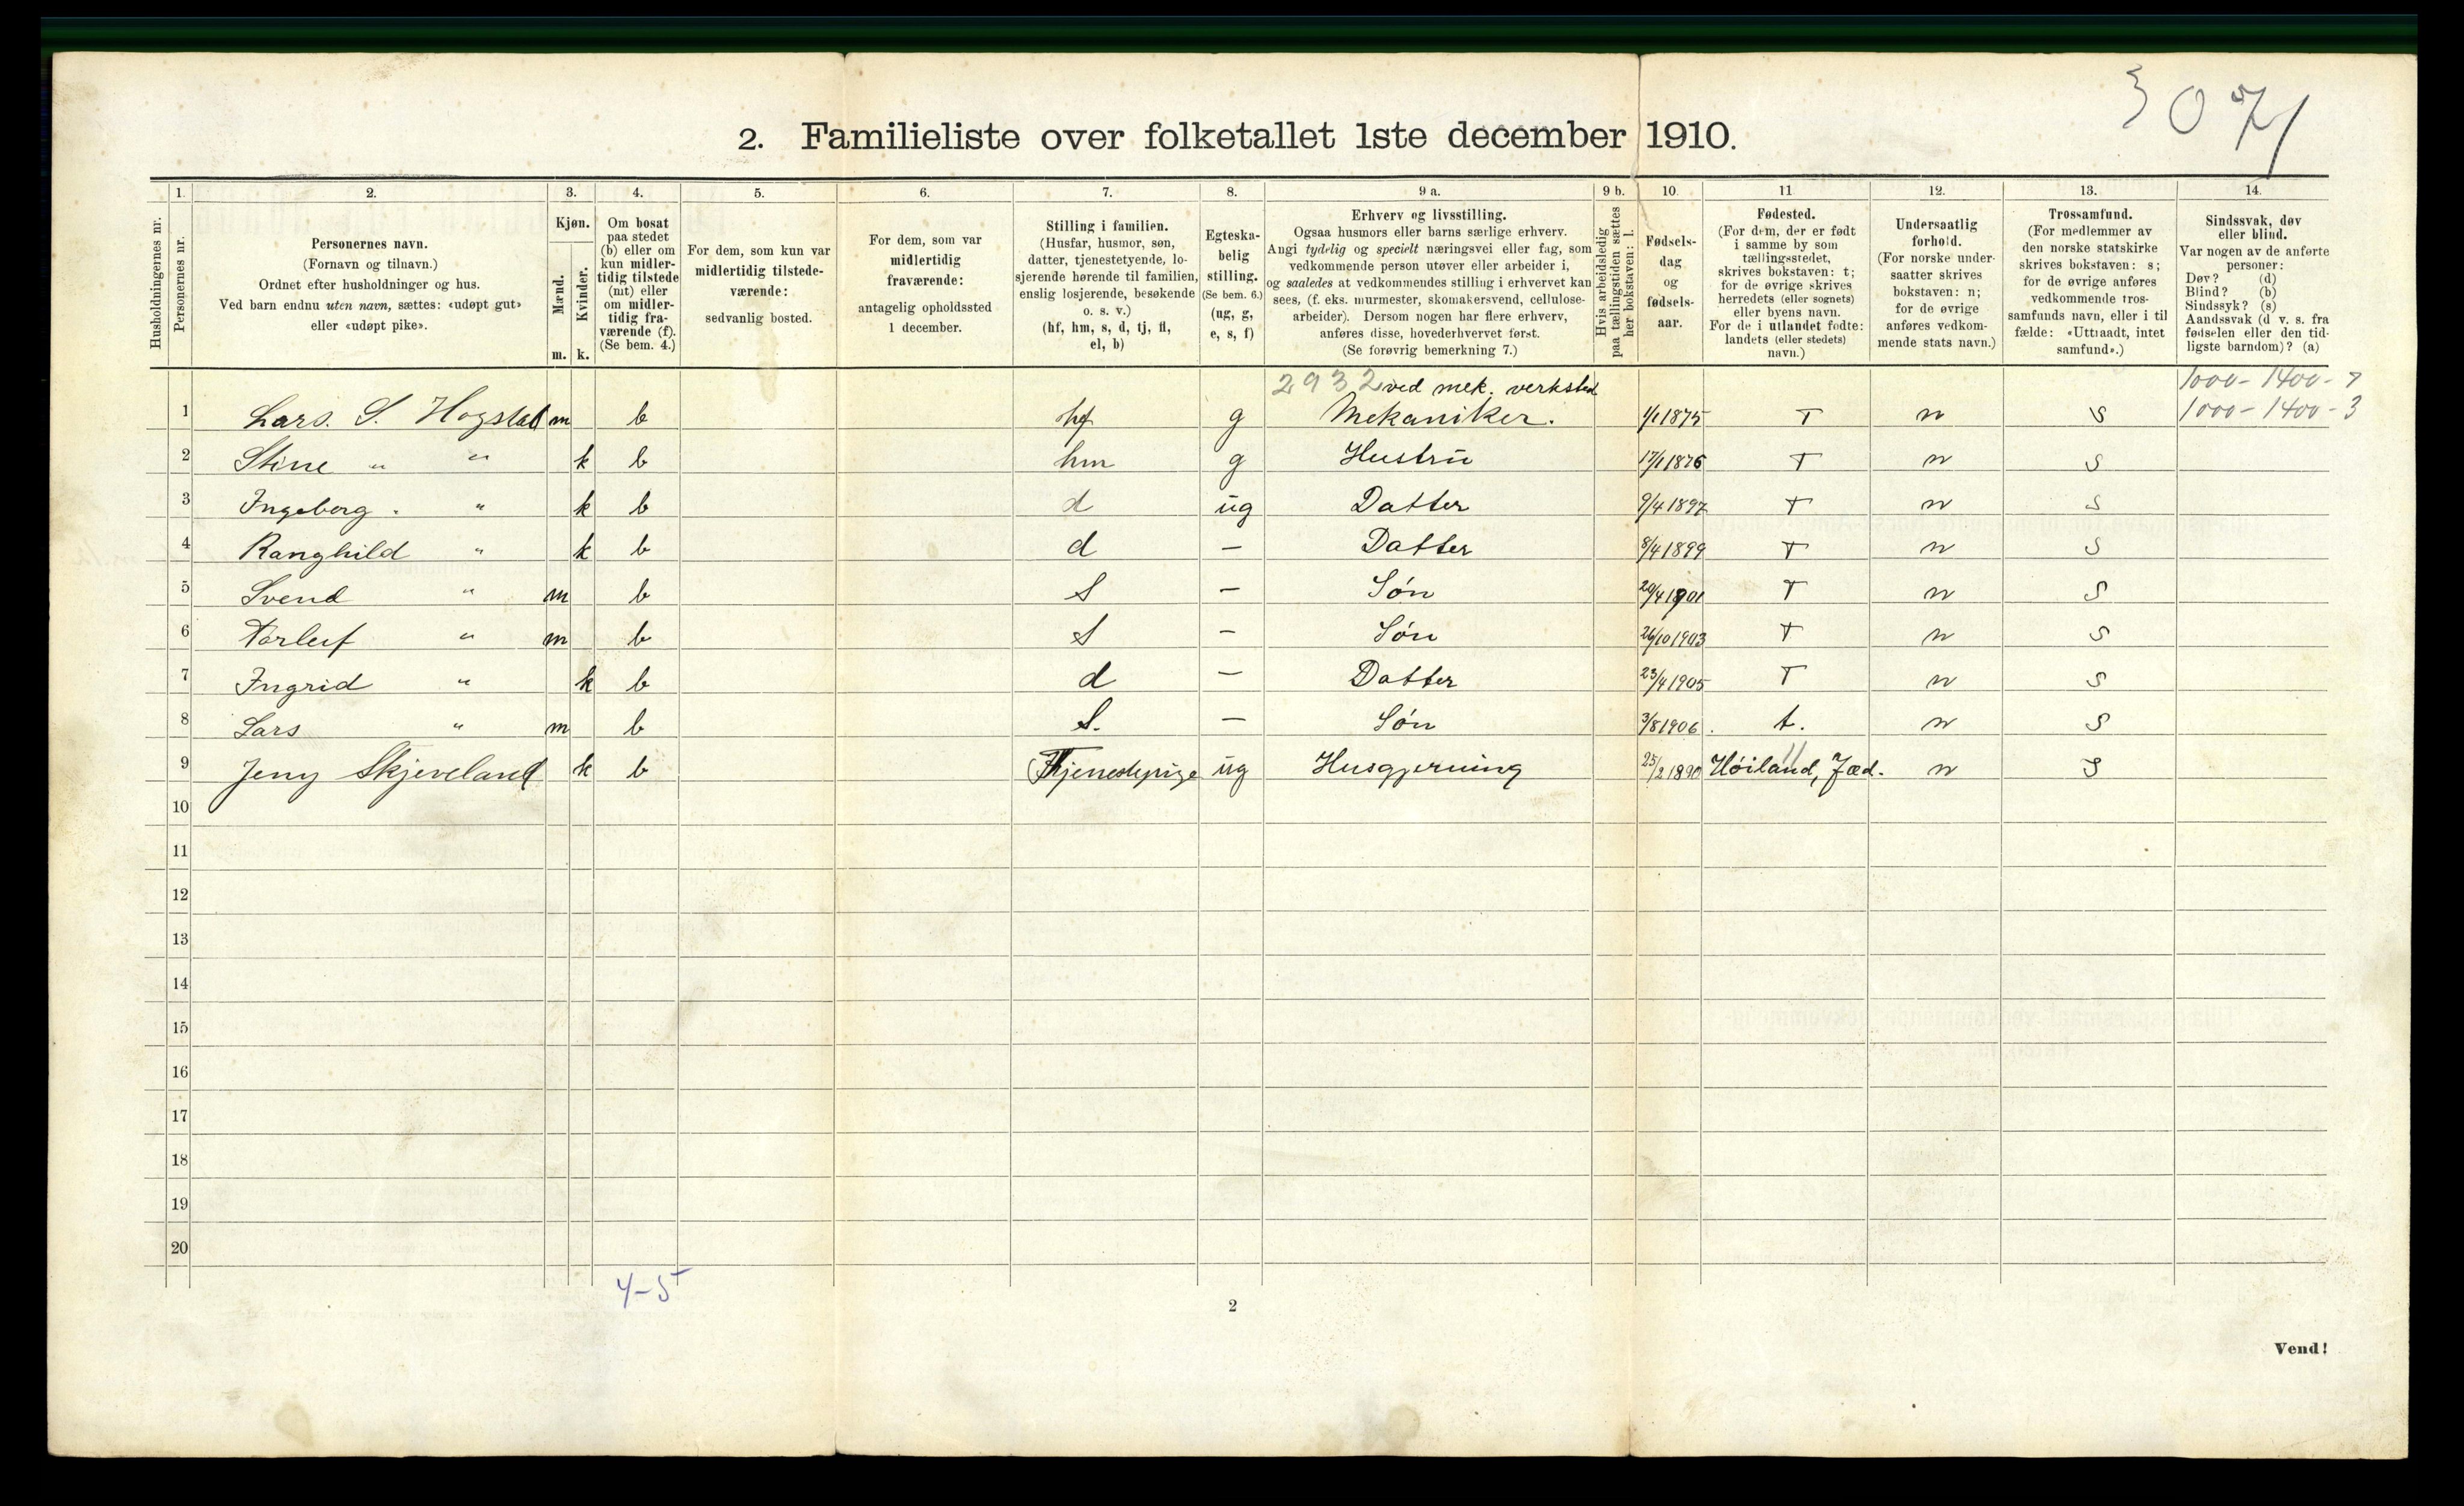 3071
2. Familieliste over folketallet 1ste december 1910.
1. 2. 3. 4. 5. 6. 7. 8. 9 a. 9 b. 10. 11 12. 13. 14.
Husholdningernes nr.
Personernes nr.
Personernes navn.
(Fornavn og tilnavn.)
Ordnet efter husholdninger og hus.
Ved barn endnu uten navn, sættes: «udøpt gut»
eller «udøpt pike».
Kjøn.
Mænd.
Kvinder.
m. k.
Om bosat
paa stedet
(b) eller om
kun midler-
tidig tilstede
(mt) eller
om midler-
tidig fra-
værende (f).
(Se bem. 4.)
For dem, som kun var
midlertidig tilstede-
værende:
sedvanlig bosted.
For dem, som var
midlertidig
fraværende:
antagelig opholdssted
1 december.
Stilling i familien.
(Husfar, husmor, søn,
datter, tjenestetyende, lo-
sjerende hørende til familien,
enslig losjerende, besøkende
o. s. v.)
(hf, hm, s, d, tj, fl,
el, b)
Egteska-
belig
stilling.
(Se bem. 6.)
(ug, g,
e, s, f)
Erhverv og livsstilling.
Ogsaa husmors eller barns særlige erhverv.
Angi tydelig og specielt næringsvei eller fag, som
vedkommende person utøver eller arbeider i,
og saaledes at vedkommendes stilling i erhvervet kan
sees, (f. eks. murmester, skomakersvend, cellulose-
arbeider). Dersom nogen har flere erhverv,
anføres disse, hovederhvervet først.
(Se forøvrig bemerkning 7.)
Hvis arbeidsledig
paa tællingstiden sættes
her bokstaven: l.
Fødsels-
dag
og
fødsels-
aar.
Fødested.
(For dem, der er født
i samme by som
tællingsstedet,
skrives bokstaven: t;
for de øvrige skrives
herredets (eller sognets)
eller byens navn.
For de i utlandet fødte:
landets (eller stedets)
navn.)
Undersaatlig
forhold.
(For norske under-
saatter skrives
bokstaven: n;
for de øvrige
anføres vedkom-
mende stats navn.)
Trossamfund.
(For medlemmer av
den norske statskirke
skrives bokstaven: s;
for de øvrige anføres
vedkommende tros-
samfunds navn, eller i til
fælde: «Uttraadt, intet
samfund».)
Sindssvak, døv
eller blind.
Var nogen av de anførte
personer:
Døv? (d)
Blind? (b)
Sindssyk? (s)
Aandssvak (d v. s. fra
fødselen eller den tid-
ligste barndom)? (a)
2932 ved mek. verksted 1000-1400-7
1 Lars. S. Hogstad m b hf g Mekaniker. 1/1 1875 T n S 1000-1400-3
2 Stine " " k b hm g Hustru 17/1 1876 T n S
3 Ingeborg. " k b d ug Datter 9/4 1897 T n S
4 Ranghild " k b d — Datter 8/4 1899 T n S
5 Svend " m b S — Søn 20/4 1901 T n S
6 Torleif " m b S — Søn 26/10 1903 T n S
7 Ingrid " k b d — Datter 23/4 1905 T n S
8 Lars " m b S. — Søn 3/8 1906. t. n S
9 Jeny Skjeveland k b Tjenestepige ug Husgjerning 25/2 1890 Høiland, Jæd. n S
10
11
12
13
14
15
16
17
18
19
20
4-5
2
Vend!